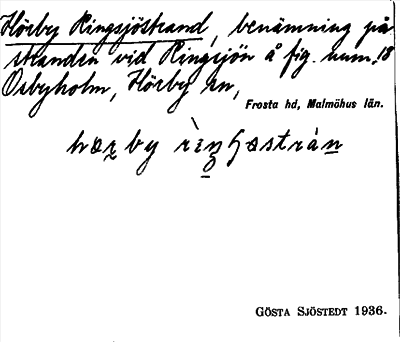 Hörby Ringsjöstrand, benämning på
stranden vid Ringsjön å fig. num. 18
Osbyholm, Hörby sn,
Frosta hd, Malmöhus län.
hœrby rìŋʃɔstràn
GÖSTA SJÖSTEDT 1936.